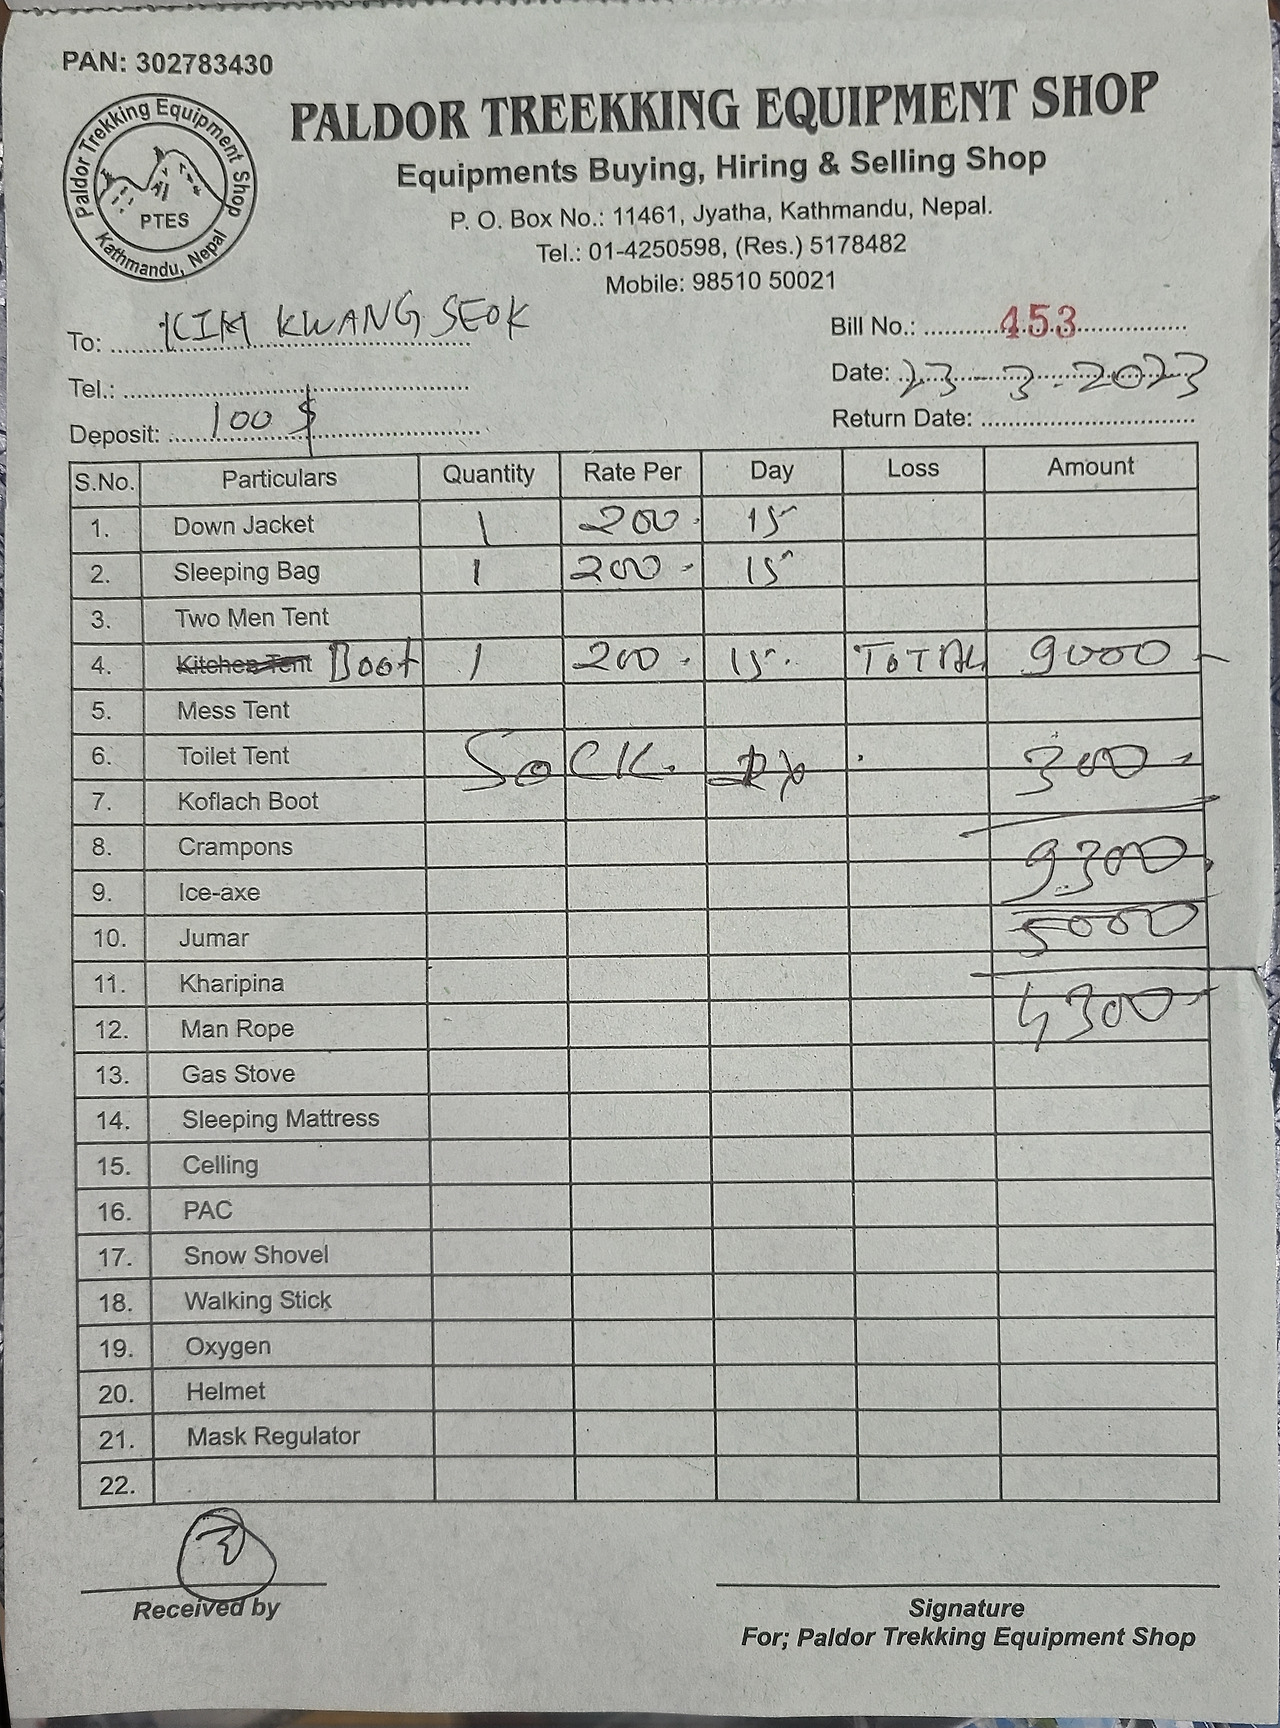 PAN: 302783430
Paldor Trekking Equipment Shop
PTES
Kathmandu, Nepal
PALDOR TREEKKING EQUIPMENT SHOP
Equipments Buying, Hiring & Selling Shop
P. O. Box No.: 11461, Jyatha, Kathmandu, Nepal.
Tel.: 01-4250598, (Res.) 5178482
Mobile: 98510 50021
To: KIM KWANG SEOK
Bill No.: 453
Tel.:
Date: 23-3-2023
Deposit: 100 $
Return Date:
S.No. Particulars Quantity Rate Per Day Loss Amount
1. Down Jacket 1 200 15
2. Sleeping Bag 1 200 15
3. Two Men Tent
4. Kitchen Tent Boot 1 200 15 TOTAL 9000
5. Mess Tent
6. Toilet Tent SOCK 300
7. Koflach Boot
8. Crampons 9300
9. Ice-axe
10. Jumar 5000
11. Kharipina
12. Man Rope 4300
13. Gas Stove
14. Sleeping Mattress
15. Celling
16. PAC
17. Snow Shovel
18. Walking Stick
19. Oxygen
20. Helmet
21. Mask Regulator
22.
Received by
Signature
For; Paldor Trekking Equipment Shop